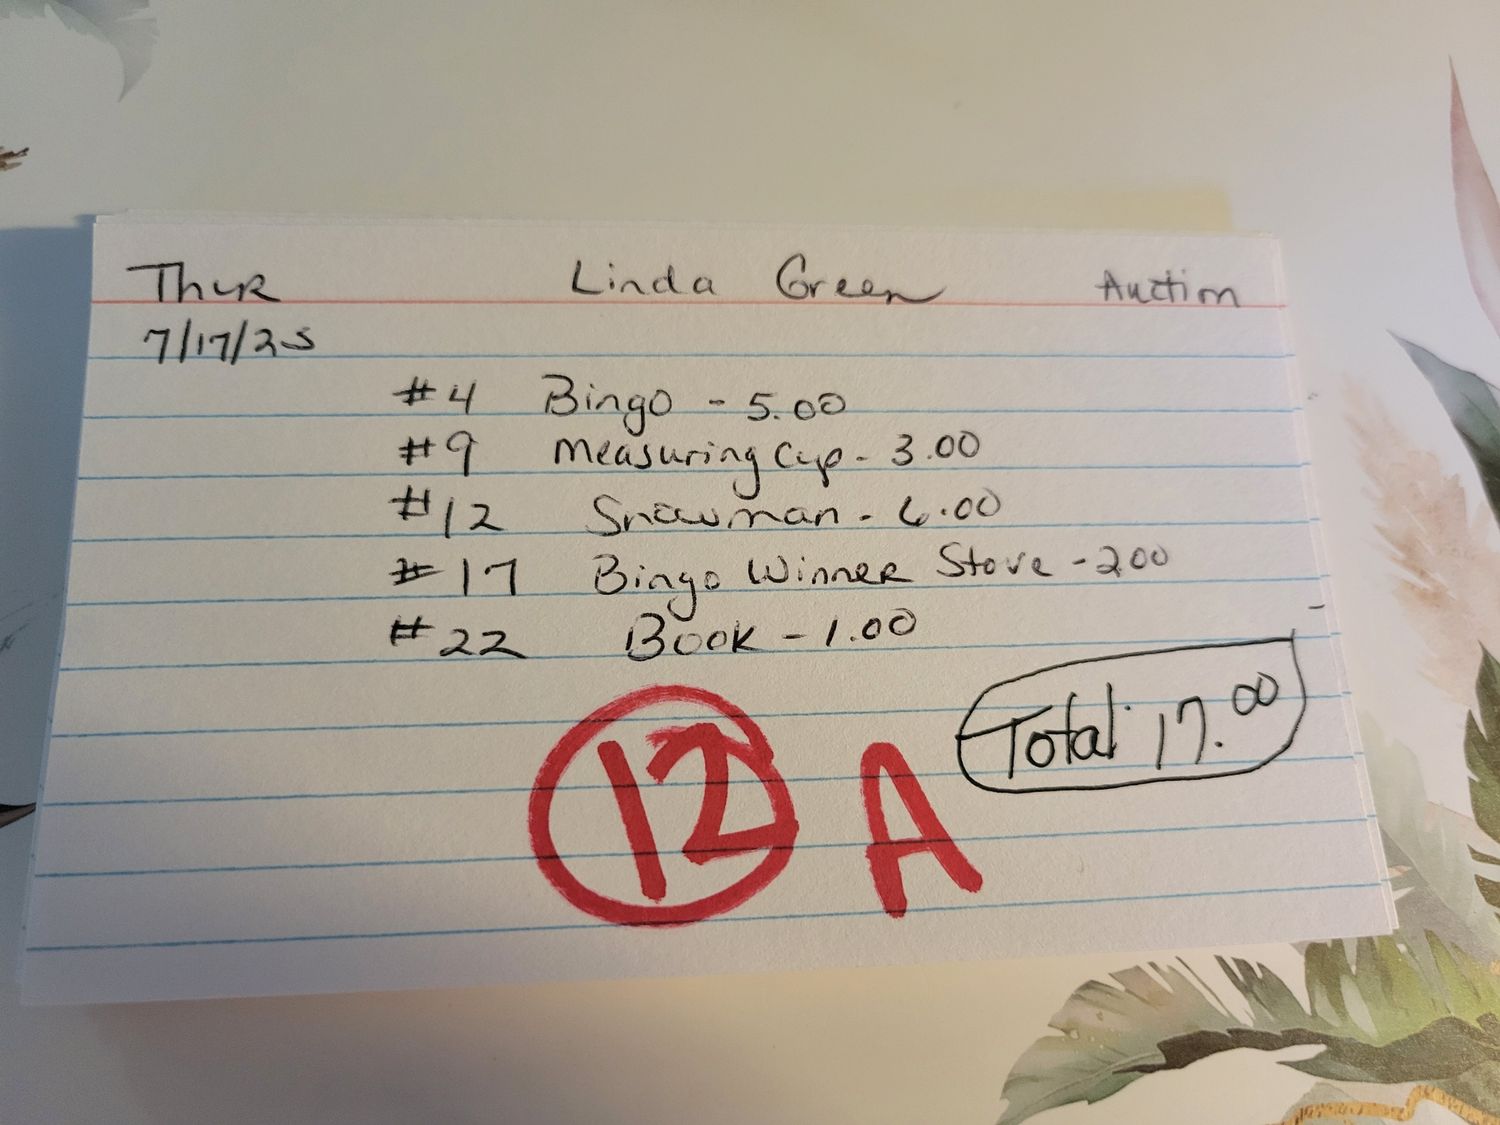 Thur Linda Green Auction
7/17/25
#4 Bingo - 5.00
#9 Measuring Cup - 3.00
#12 Snowman - 6.00
#17 Bingo Winner Stove - 2.00
#22 Book - 1.00
Total: 17.00
12 A